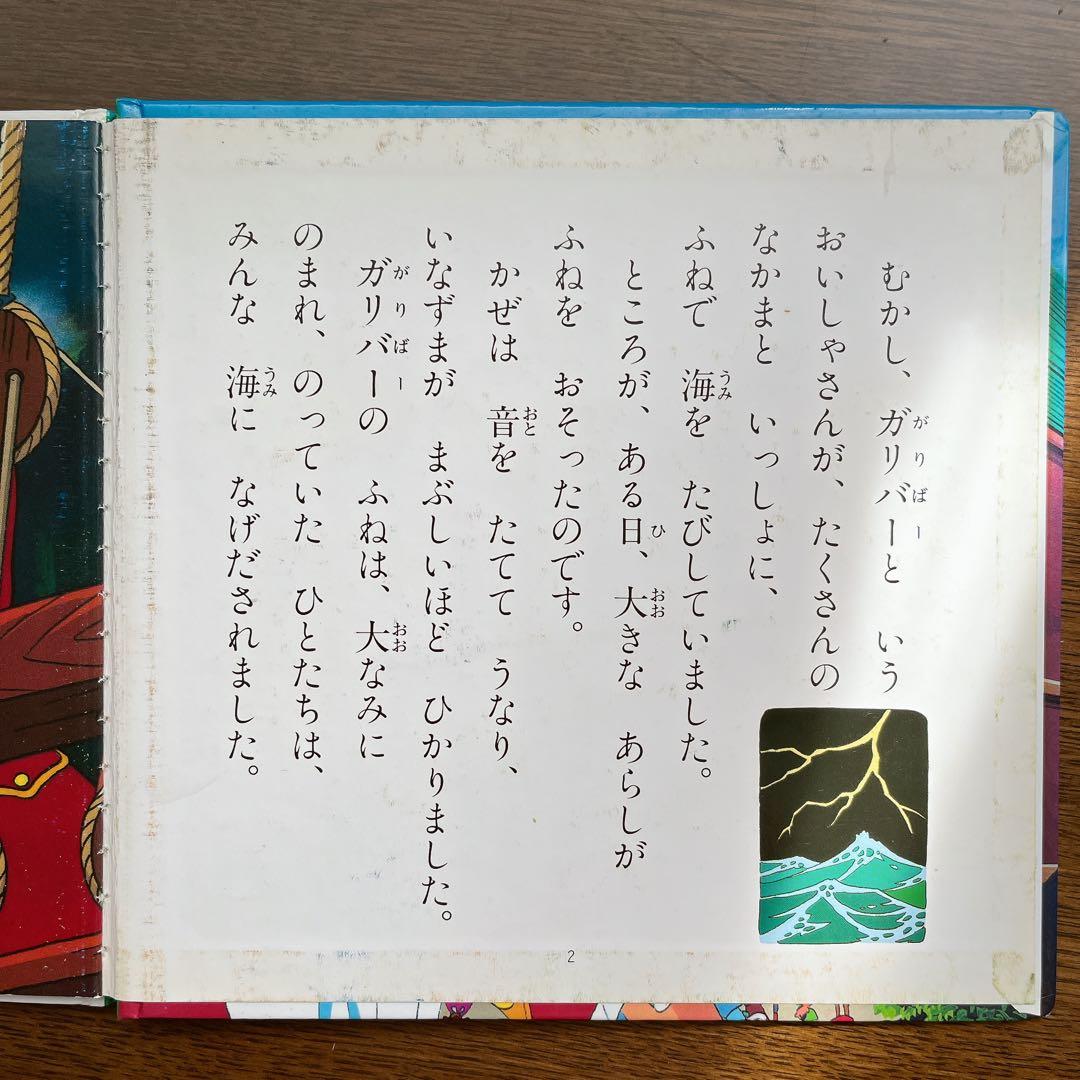 むかし、ガリバーと　いう
おいしゃさんが、たくさんの
なかまと　いっしょに、
ふねで　海を　たびしていました。
ところが、ある日、大きな　あらしが
ふねを　おそったのです。
かぜは　音を　たてて　うなり、
いなずまが　まぶしいほど　ひかりました。
ガリバーの　ふねは、大なみに
のまれ、のっていた　ひとたちは、
みんな　海に　なげだされました。
がりばー
うみ
ひ
おお
おと
がりばー
おお
うみ
2